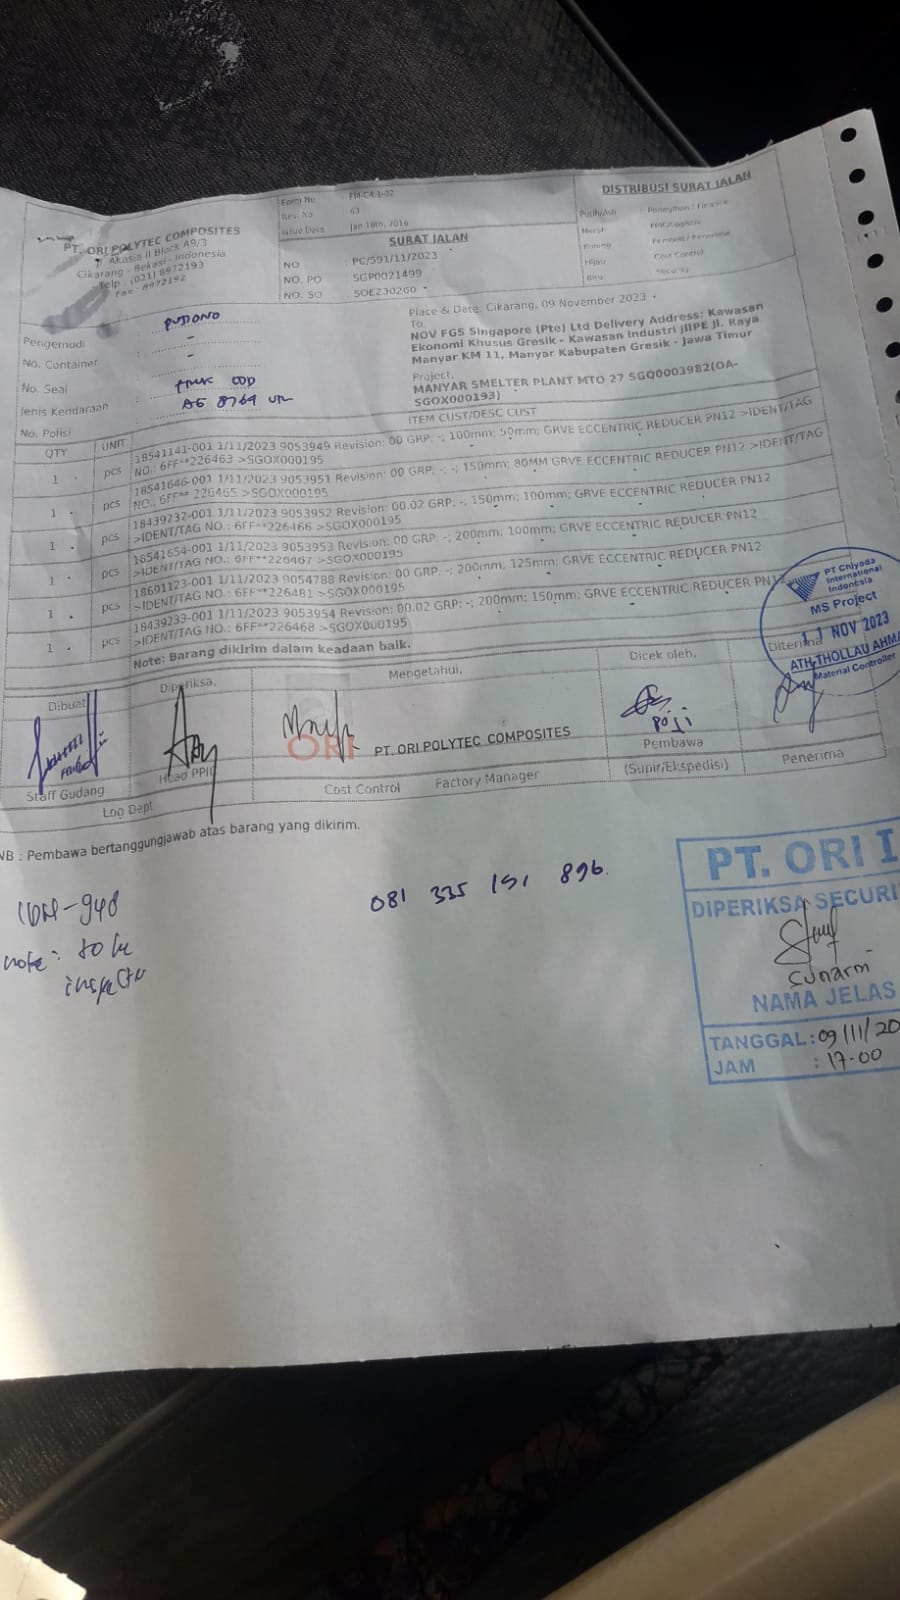 PT. ORI POLYTEC COMPOSITES
Jl. Akasia II Block A9/3
Cikarang - Bekasi - Indonesia
Telp : (021) 8972193
Fax : 8972192
Form No FM-C4.1-02
Rev. No 03
Issue Date Jan 18th, 2016
SURAT JALAN
NO : PC/591/11/2023
NO. PO : SGP0021499
NO. SO : SOE230260
DISTRIBUSI SURAT JALAN
Putih/Asli : Penagihan / Finance
Merah : PPIC/Logistic
Kuning : Pembeli / Penerima
Hijau : Cost Control
Biru : Security
Pengemudi : PUJIONO
No. Container : -
No. Seal : -
Jenis Kendaraan : truk CDD
No. Polisi : AG 8769
Place & Date: Cikarang, 09 November 2023
To
NOV FGS Singapore (Pte) Ltd Delivery Address: Kawasan
Ekonomi Khusus Gresik - Kawasan Industri JIIPE Jl. Raya
Manyar KM 11, Manyar Kabupaten Gresik - Jawa Timur
Project.
MANYAR SMELTER PLANT MTO 27 SGQ0003982(OA-
SGOX000193)
QTY UNIT ITEM CUST/DESC CUST
1 pcs 18541141-001 1/11/2023 9053949 Revision: 00 GRP; -; 100mm; 50mm; GRVE ECCENTRIC REDUCER PN12 >IDENT/TAG
NO.: 6FF**226463 >SGOX000195
1 pcs 18541646-001 1/11/2023 9053951 Revision: 00 GRP; -; 150mm; 80MM GRVE ECCENTRIC REDUCER PN12 >IDENT/TAG
NO.: 6FF** 226465 >SGOX000195
1 pcs 18439232-001 1/11/2023 9053952 Revision: 00.02 GRP; -; 150mm; 100mm; GRVE ECCENTRIC REDUCER PN12
>IDENT/TAG NO.: 6FF**226466 >SGOX000195
1 pcs 18541654-001 1/11/2023 9053953 Revision: 00 GRP; -; 200mm; 100mm; GRVE ECCENTRIC REDUCER PN12
>IDENT/TAG NO.: 6FF**226467 >SGOX000195
1 pcs 18691123-001 1/11/2023 9054788 Revision: 00 GRP. -; 200mm, 125mm; GRVE ECCENTRIC REDUCER PN12
>IDENT/TAG NO.: 6FF**226481 >SGOX000195
1 pcs 18439233-001 1/11/2023 9053954 Revision: 00.02 GRP; -; 200mm; 150mm; GRVE ECCENTRIC REDUCER PN12
>IDENT/TAG NO.: 6FF**226468 >SGOX000195
Note: Barang dikirim dalam keadaan baik.
PT Chiyoda
International
Indonesia
MS Project
11 NOV 2023
ATH THOLLAU AHMA
Material Controller
Dibuat Diperiksa, Mengetahui, Dicek oleh, Diterima
ORI PT. ORI POLYTEC COMPOSITES
Poji
Staff Gudang Head PPIC Cost Control Factory Manager Pembawa Penerima
(Supir/Ekspedisi)
Log Dept
NB : Pembawa bertanggungjawab atas barang yang dikirim.
081 335 151 896
note:
PT. ORI I
DIPERIKSA SECURI
Sunarm
NAMA JELAS
TANGGAL : 09/11/20
JAM : 17.00